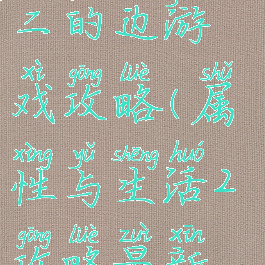 二的边游
xì gōng lüè shǔ
戏攻略(属
xìng yǔ shēng huó
性与生活2
gōng lüè zuì xīn
攻略最新